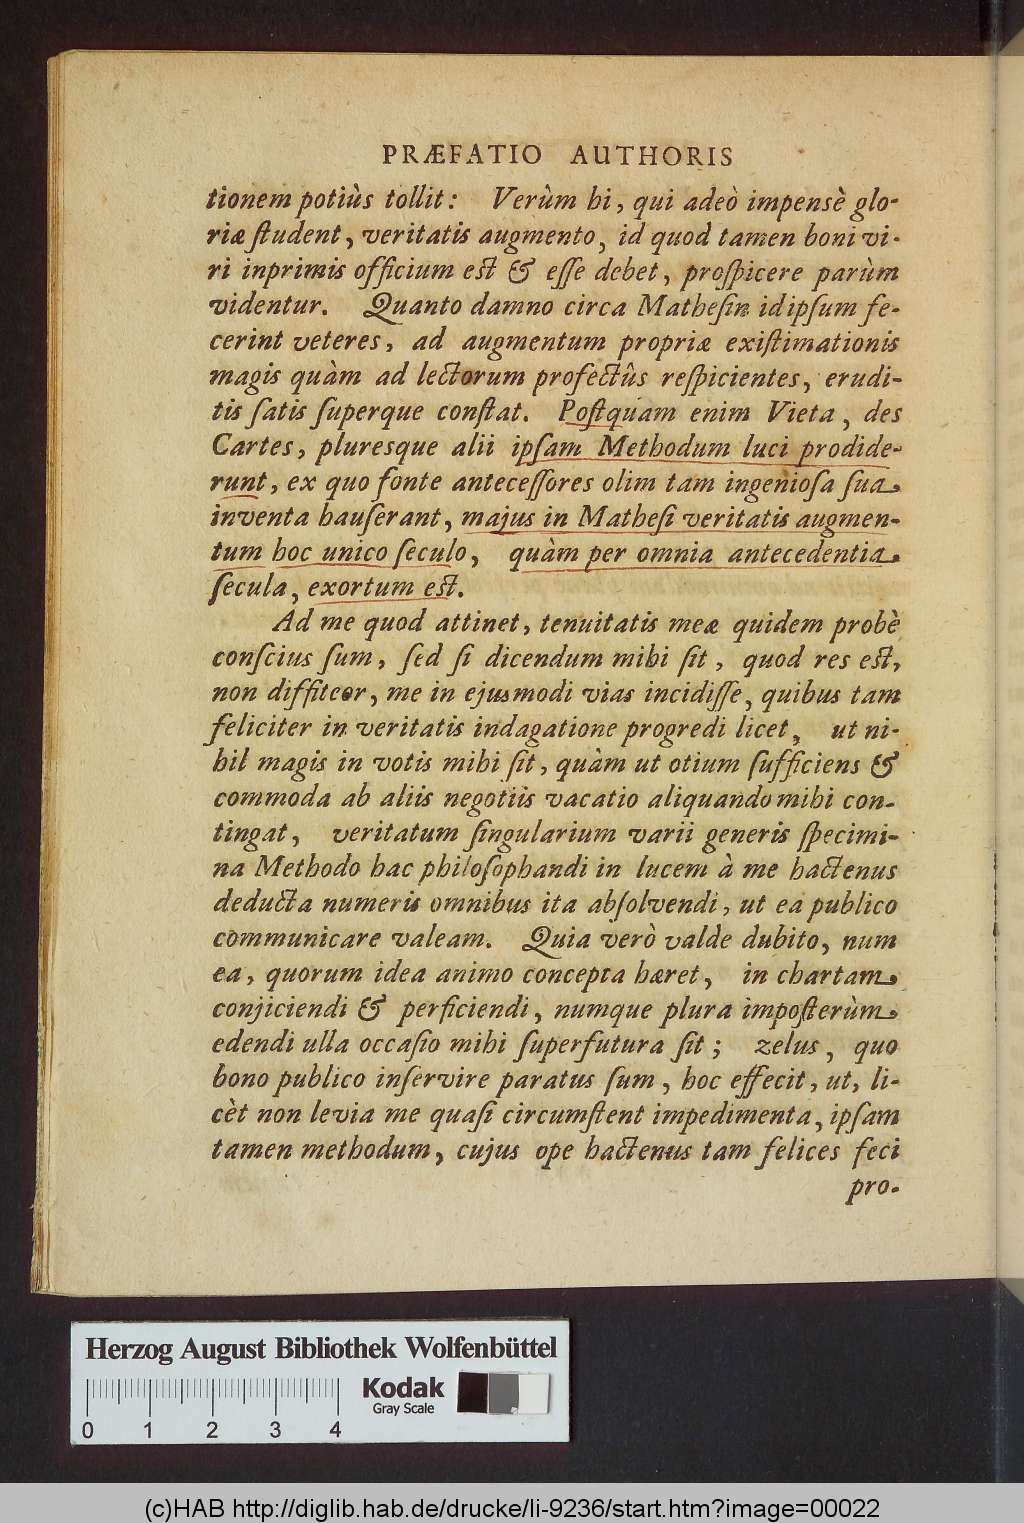 PRÆFATIO AUTHORIS
tionem potiùs tollit: Verùm hi, qui adeò impensè glo-
riæ ſtudent, veritatis augmento, id quod tamen boni vi-
ri inprimis officium est & eſſe debet, proſpicere parùm
videntur. Quanto damno circa Matheſin id ipſum fe-
cerint veteres, ad augmentum propriæ exiſtimationis
magis quàm ad lectorum profectûs reſpicientes, erudi-
tis ſatis ſuperque conſtat. Poſtquam enim Vieta, des
Cartes, pluresque alii ipſam Methodum luci prodide-
runt, ex quo fonte anteceſſores olim tam ingenioſa ſua
inventa hauſerant, majus in Matheſi veritatis augmen-
tum hoc unico ſeculo, quàm per omnia antecedentia
ſecula, exortum est.
Ad me quod attinet, tenuitatis meæ quidem probè
conſcius ſum, ſed ſi dicendum mihi ſit, quod res est,
non diffiteor, me in ejusmodi vias incidiſſe, quibus tam
feliciter in veritatis indagatione progredi licet, ut ni-
hil magis in votis mihi ſit, quàm ut otium ſufficiens &
commoda ab aliis negotiis vacatio aliquando mihi con-
tingat, veritatum ſingularium varii generis ſpecimi-
na Methodo hac philoſophandi in lucem à me hactenus
deducta numeris omnibus ita abſolvendi, ut ea publico
communicare valeam. Quia verò valde dubito, num
ea, quorum idea animo concepta hæret, in chartam
conjiciendi & perficiendi, numque plura impoſterùm
edendi ulla occaſio mihi ſuperfutura ſit; zelus, quo
bono publico inſervire paratus ſum, hoc effecit, ut, li-
cèt non levia me quaſi circumſtent impedimenta, ipſam
tamen methodum, cujus ope hactenus tam felices feci
pro-
Herzog August Bibliothek Wolfenbüttel
Kodak
Gray Scale
0 1 2 3 4
(c)HAB http://diglib.hab.de/drucke/li-9236/start.htm?image=00022